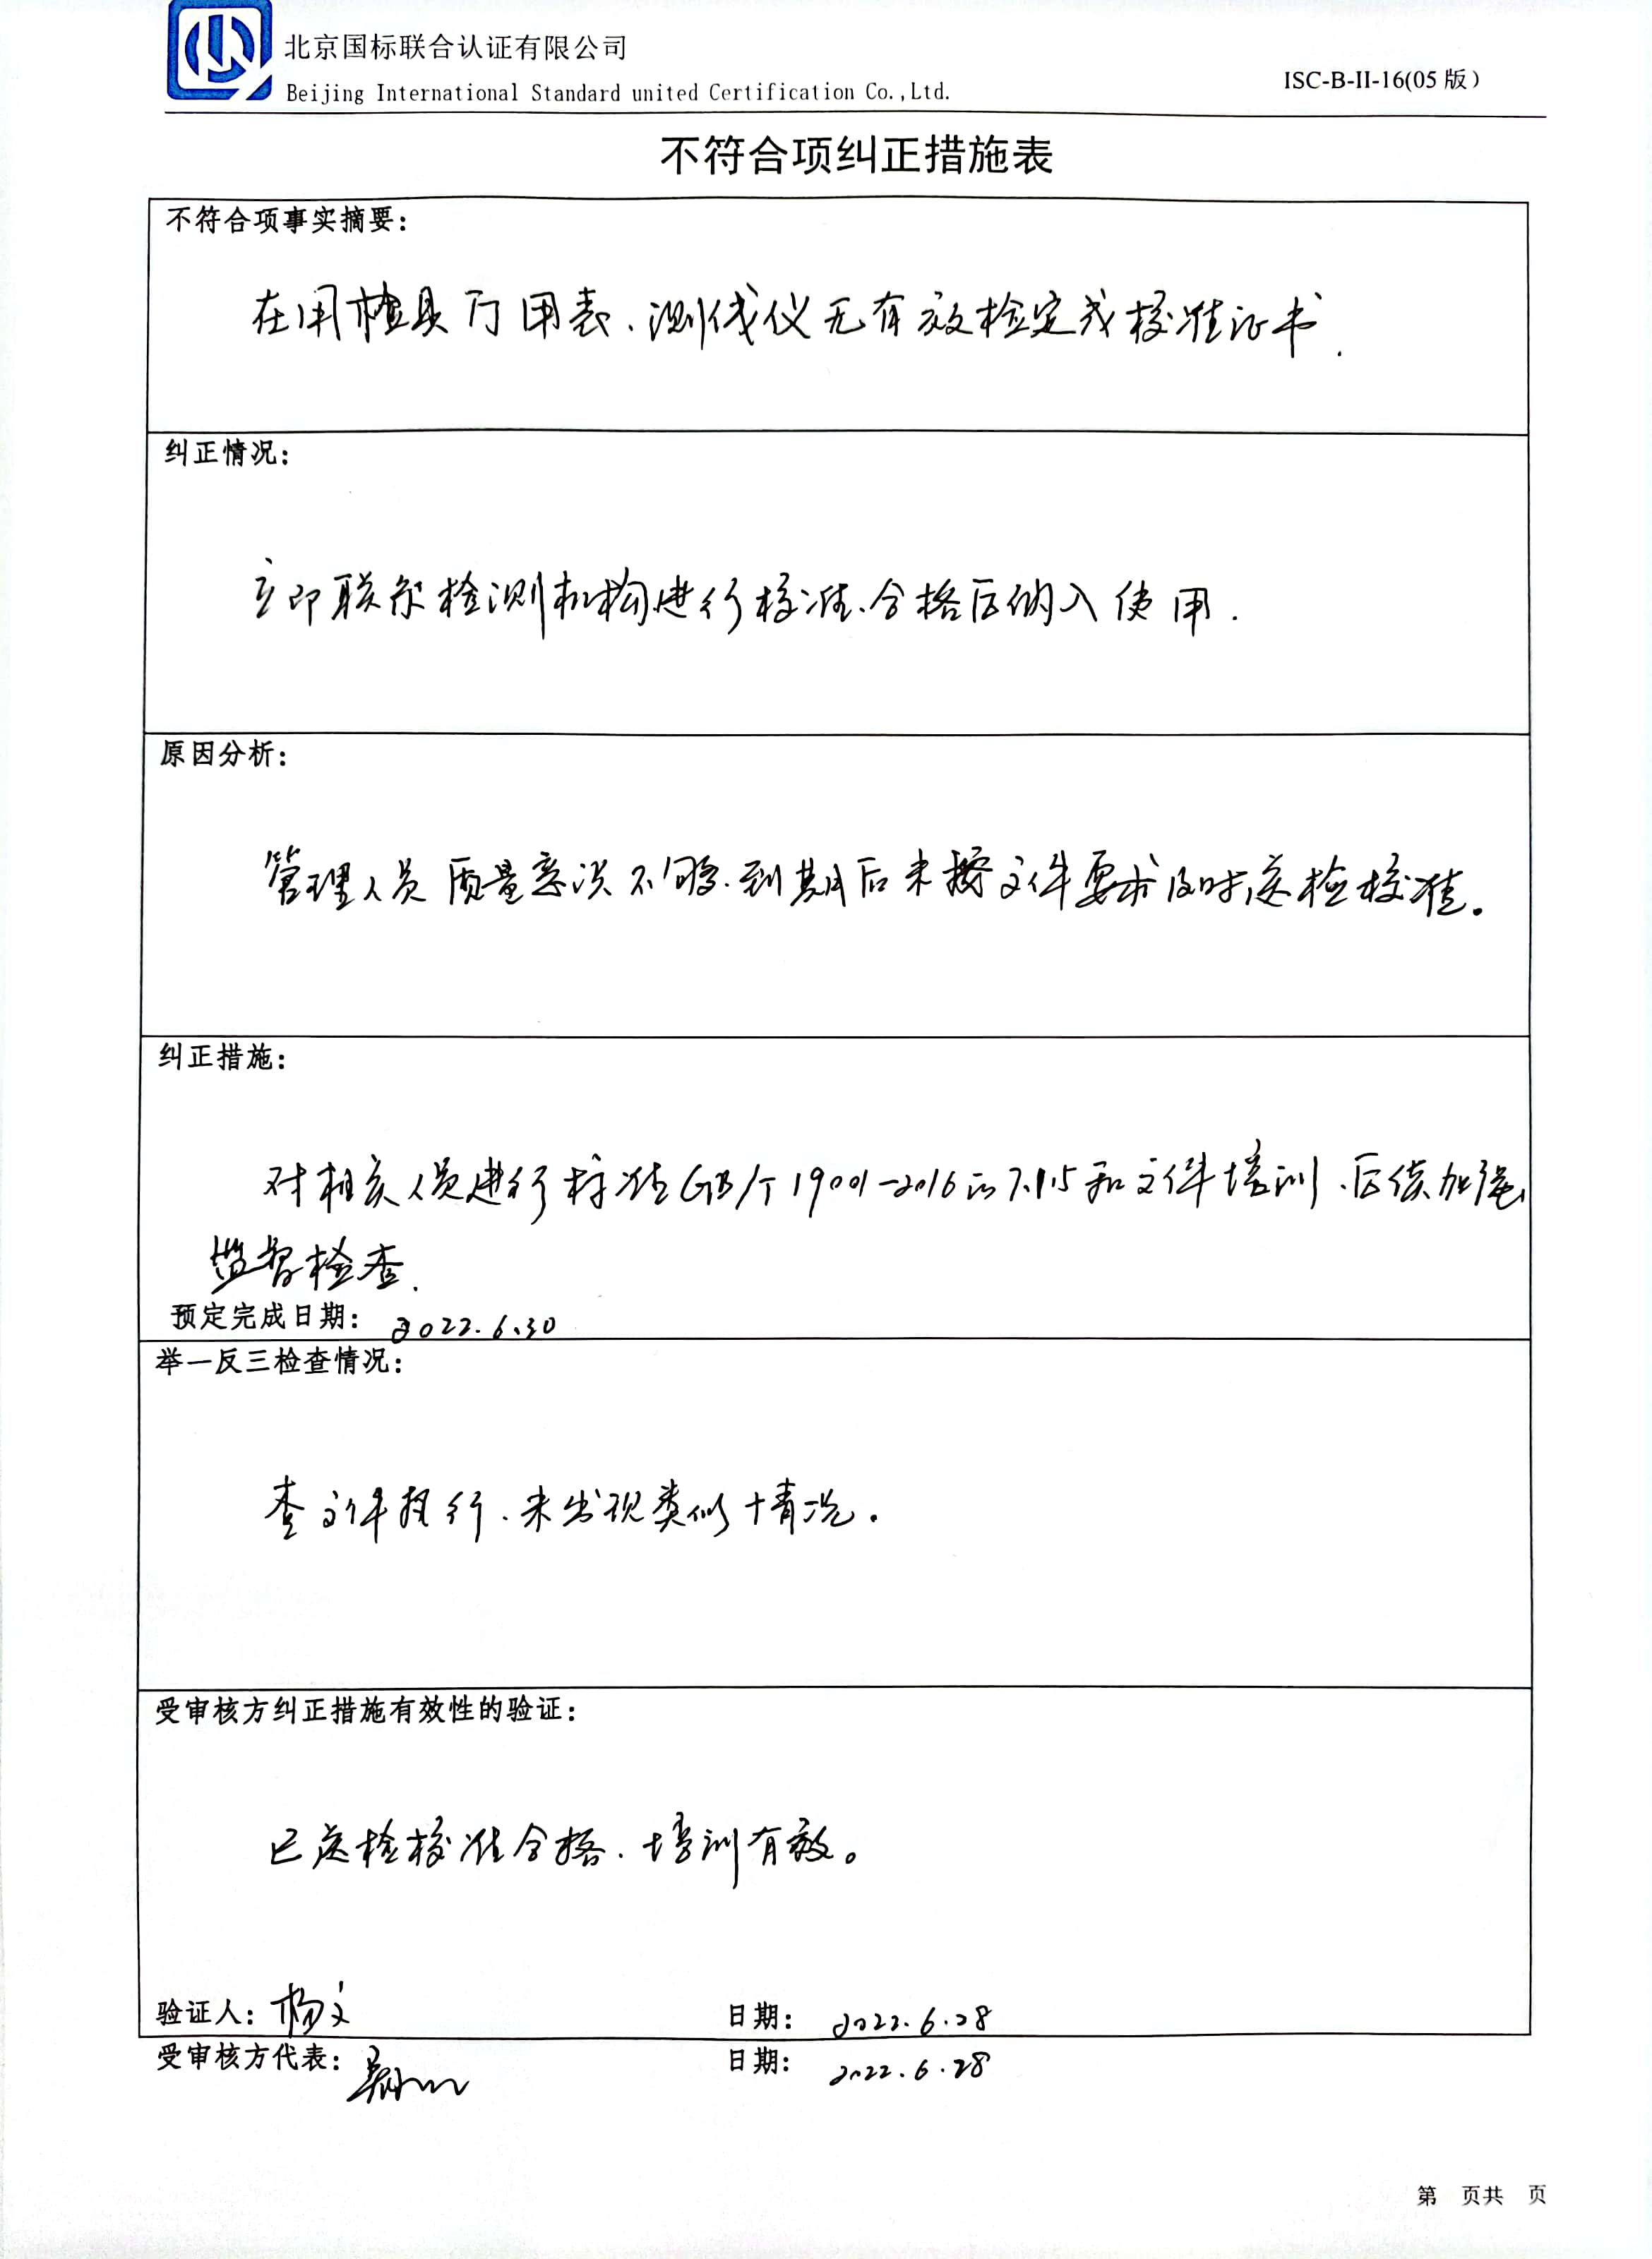 北京国标联合认证有限公司
Beijing International Standard united Certification Co.,Ltd.
ISC-B-II-16(05 版)
不符合项纠正措施表
不符合项事实摘要:
在用 万用表、测线仪无有效检定或校准证书.
纠正情况:
立即联系检测机构进行校准、合格后纳入使用.
原因分析:
管理人员质量意识不够.到期后未按文件要求及时送检校准。
纠正措施:
对相关人员进行标准GB/T 19001-2016的7.1.5和文件培训、后续加强
监督检查.
预定完成日期: 2022.6.30
举一反三检查情况:
查文件执行、未发现类似情况。
受审核方纠正措施有效性的验证:
已送检校准合格、培训有效。
验证人: 杨文 日期: 2022.6.28
受审核方代表: 日期: 2022.6.28
第 页共 页